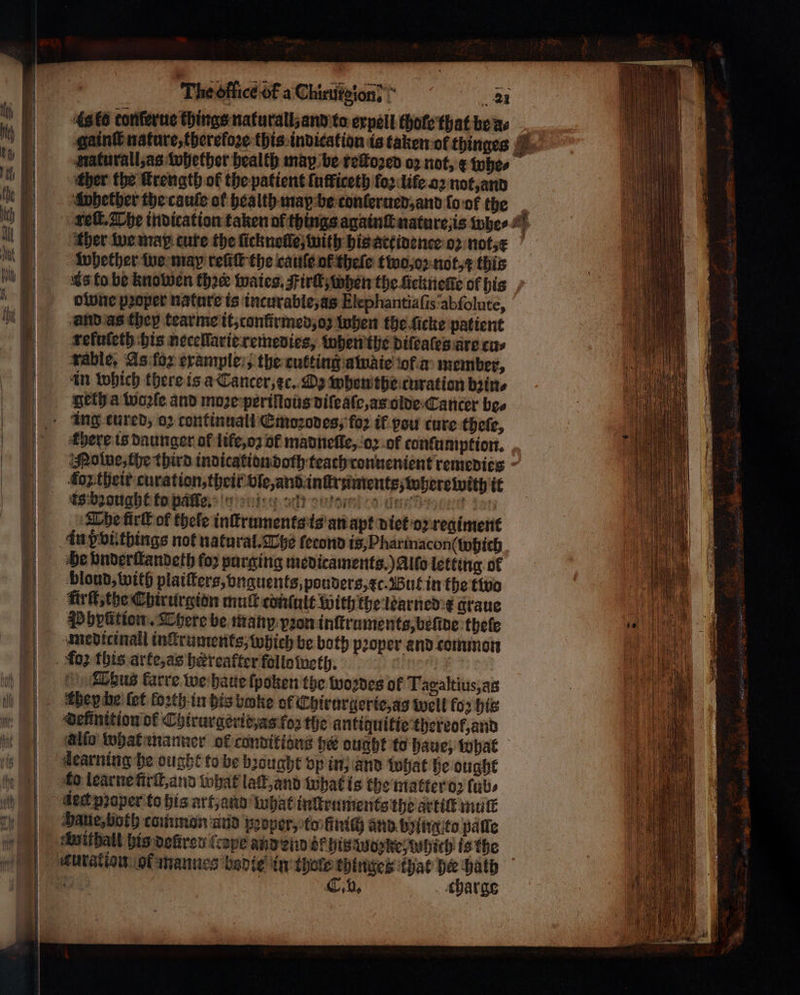 The office of a Chirurgion. 21
is to conserue things naturall, and to expell those that be a-
gainst nature, therefore this indication is taken of thinges
naturall, as whether health may be restored or not, & whe-
ther the strength of the patient sufficeth for life or not, and
whether the cause of health may be conserued, and so of the
rest. The indication taken of things against nature, is whe-
ther we may cure the sicknesse, with his accidence or not, &
whether we may resist the cause of these two, or not, & this
is to be knowen thrée waies. First, when the sicknesse of his
owne proper nature is incurable, as Elephantiasis absolute,
and as they tearme it, confirmed, or when the sicke patient
refuseth his necessarie remedies, when the diseases are cu-
rable. As for example, the cutting awaie of a member,
in which there is a Cancer, &c. Or when the curation brin-
geth a worse and more perillous disease, as olde Cancer be-
ing cured, or continuall Emorodes, for if you cure these,
there is daunger of life, or of madnesse, or of consumption.
Nowe, the third indication doth teach conuenient remedies
for their curation, their vse, and instruments, wherewith it
is brought to passe.
The first of these instruments is an apt diet or regiment
in þ vi. things not natural. The second is, Pharmacon (which
he vnderstandeth for purging medicaments.) Also letting of
bloud, with plaisters, vnguents, pouders, &c. But in the two
first, the Chirurgion must consult with the learned & graue
Phylition. There be many yron instruments, beside these
medicinall instruments, which be both proper and common
for this arte, as héreafter followeth.
Thus farre we haue spoken the wordes of Tagaltius, as
they be set forth in his booke of Chirurgerie, as well for his
definition of Chirurgerie, as for the antiquitie thereof, and
also what manner of conditions hée ought to haue, what
learning he ought to be brought vp in, and what he ought
to learne first, and what last, and what is the matter or sub-
iect proper to his art, and what instruments the artist must
haue, both common and proper, to finish and bring to passe
withall his desired scope and end of his worke, which is the
curation of mannes bodie in those thinges that hée hath
C.v. charge